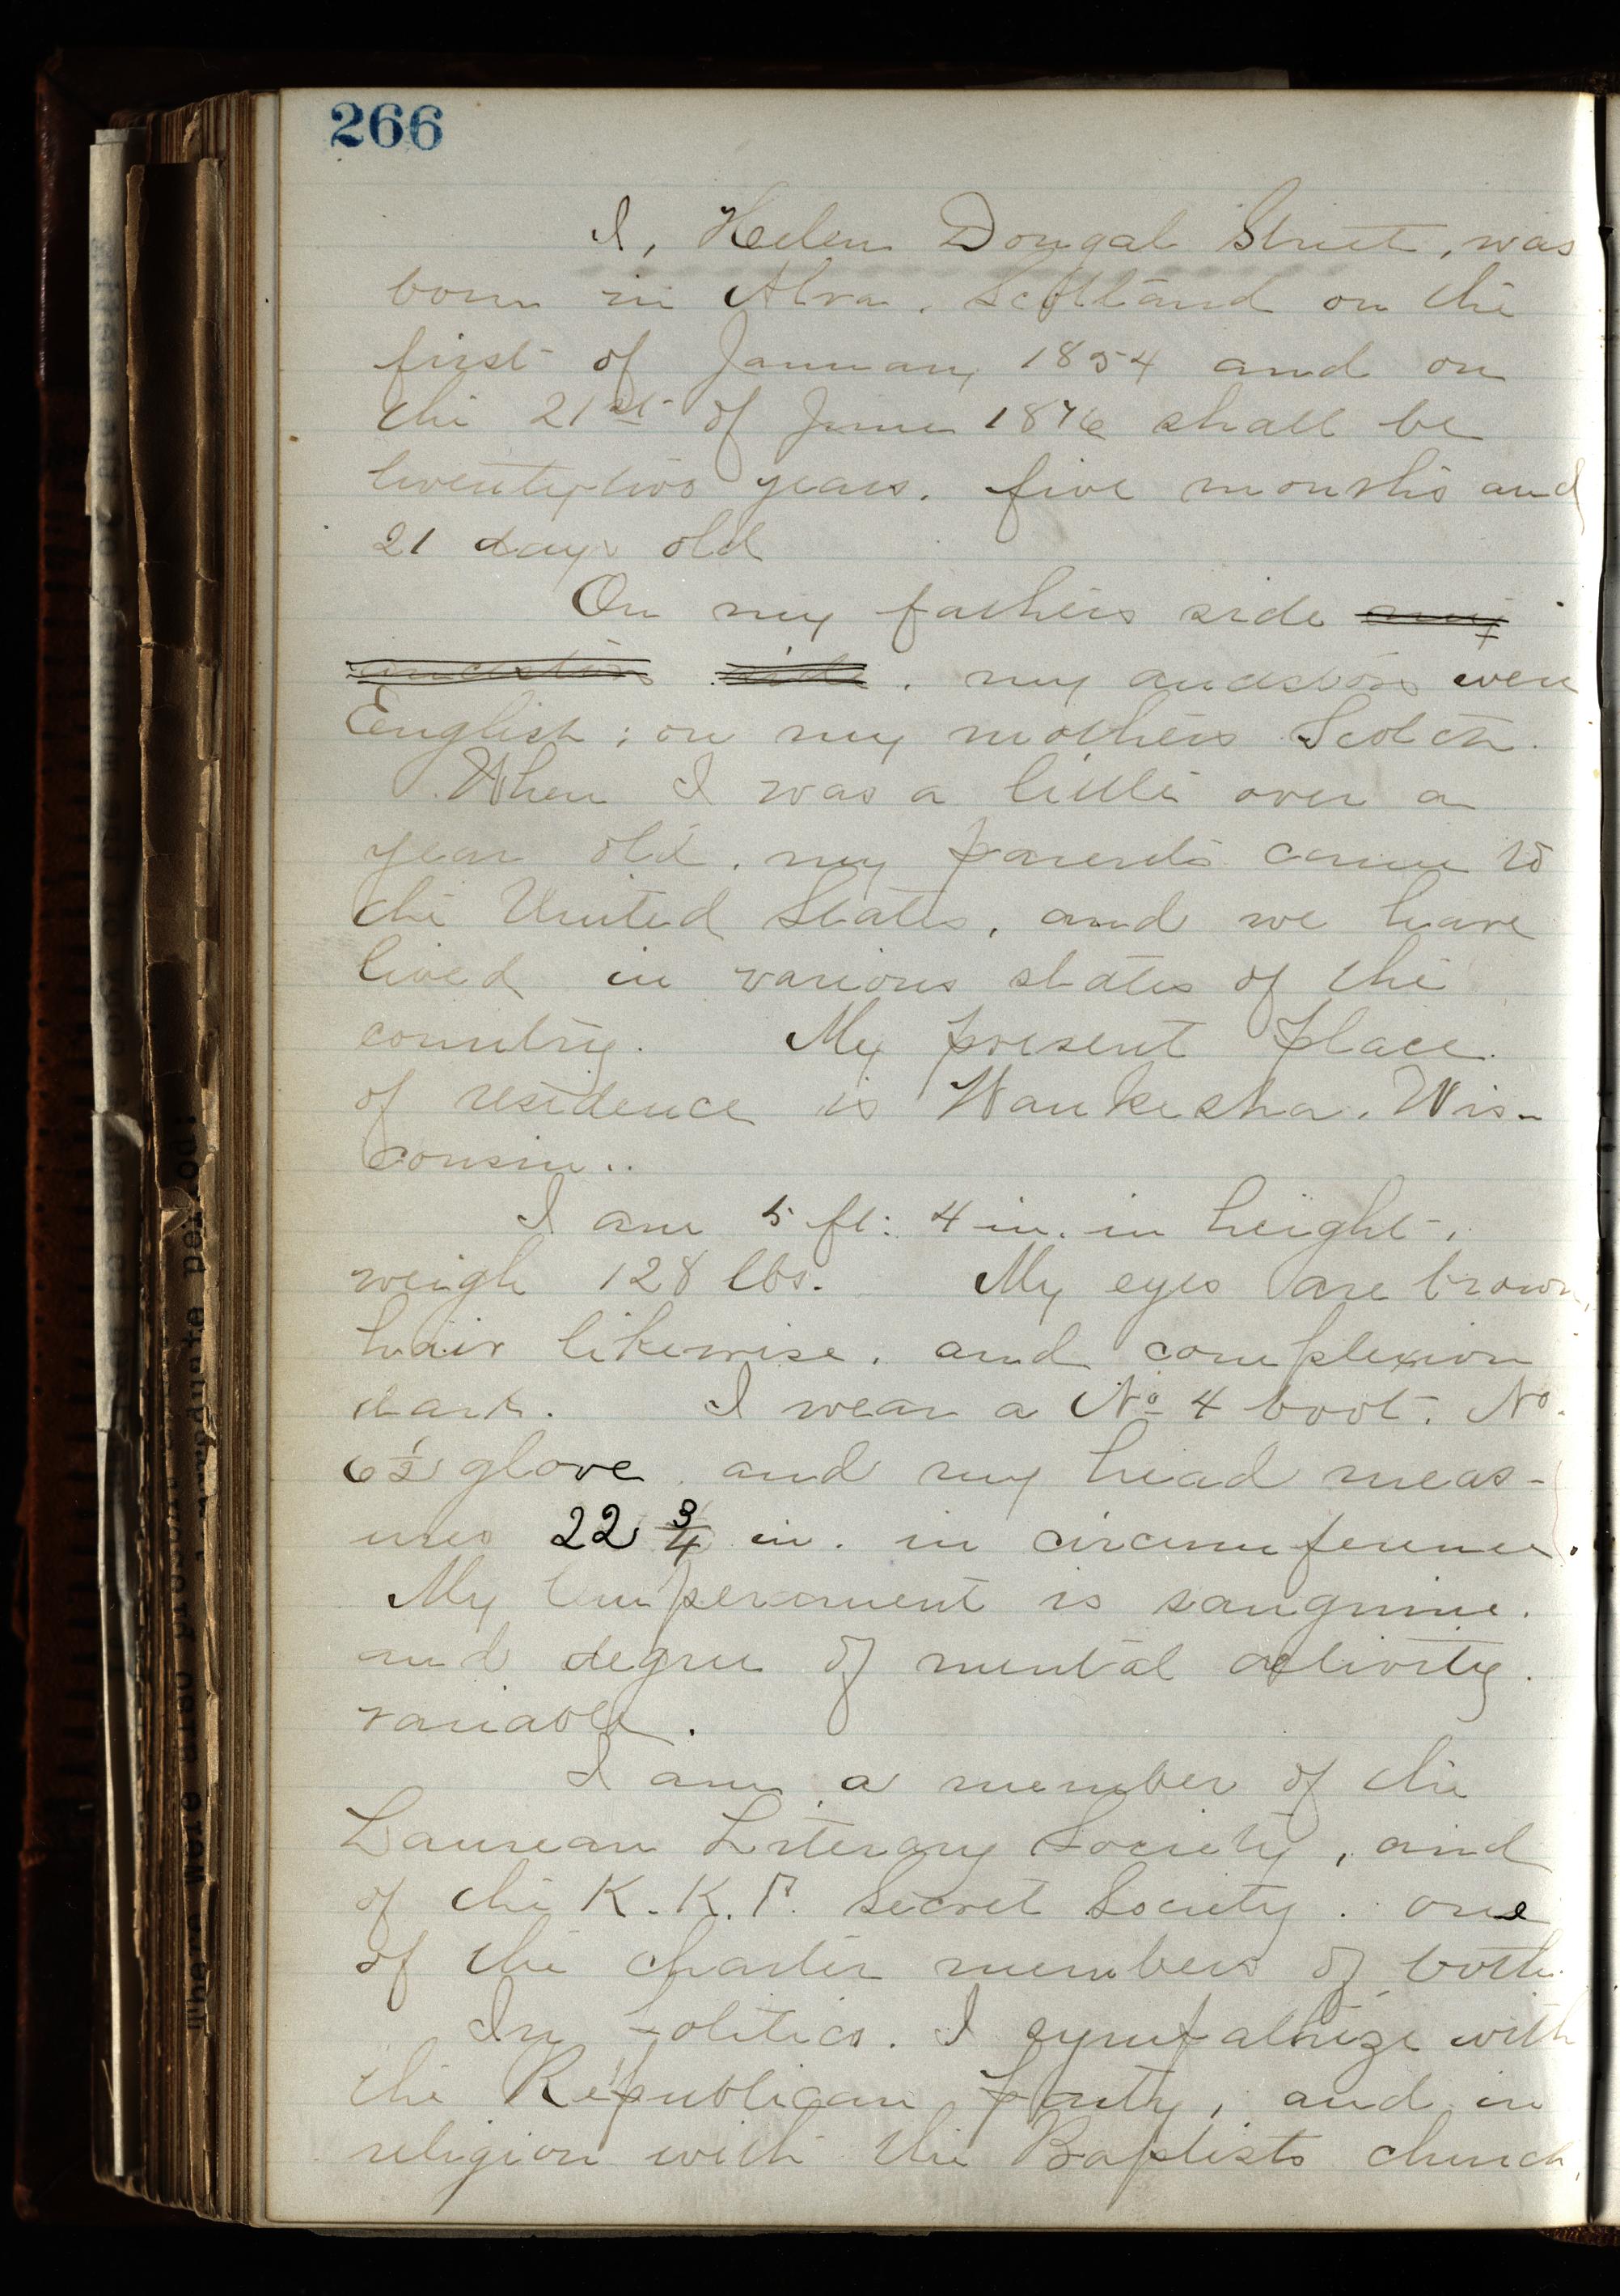 266
I, Helen Dougal Street, was
born in Alva, Scotland on the
first of January 1854 and on
the 21st of June 1876 shall be
twenty-two years, five months and
21 days old
On my fathers side my
ancestors side, my ancestors were
English; on my mothers Scotch.
When I was a little over a
year old, my parents came to
the United States, and we have
lived in various states of the
country. My present place
of residence is Waukesha, Wis-
consin..
I am 5 ft. 4 in. in height,
weigh 128 lbs. My eyes are brown,
hair likewise, and complexion
dark. I wear a No 4 boot, No.
6½ glove, and my head meas-
ures 22 ¾ in. in circumference.
My temperament is sanguine,
and degree of mental activity,
variable.
I am a member of the
Laurean Literary Society, and
of the K. K. Γ. Secret Society, one
of the charter members of both.
In politics, I sympathize with
the Republican party, and in
religion with the Baptists church,